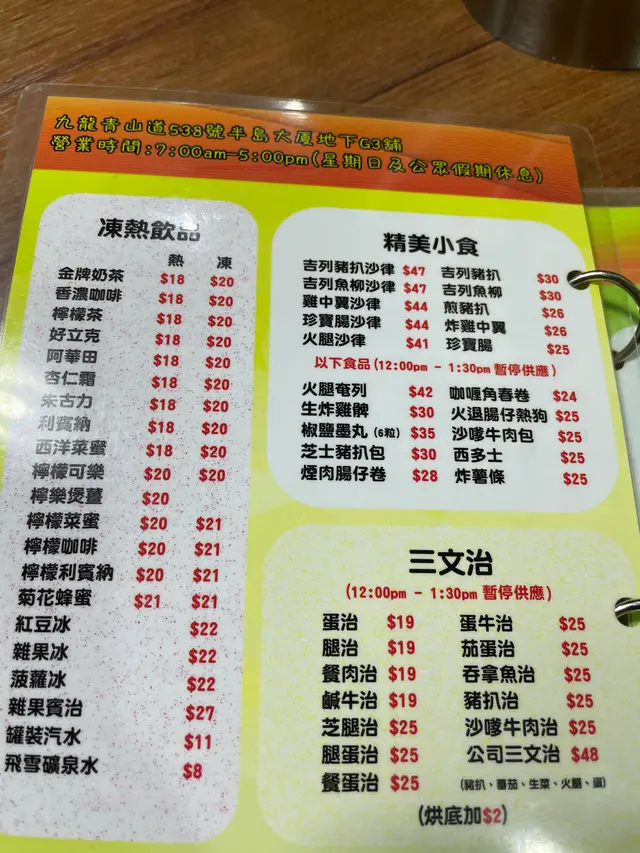 九龍青山道538號半島大廈地下G3舖
營業時間:7:00am-5:00pm(星期日及公眾假期休息)
凍熱飲品
熱 凍
金牌奶茶 $18 $20
香濃咖啡 $18 $20
檸檬茶 $18 $20
好立克 $18 $20
阿華田 $18 $20
杏仁霜 $18 $20
朱古力 $18 $20
利賓納 $18 $20
西洋菜蜜 $18 $20
檸檬可樂 $20 $20
檸樂煲薑 $20
檸檬菜蜜 $20 $21
檸檬咖啡 $20 $21
檸檬利賓納 $20 $21
菊花蜂蜜 $21 $21
紅豆冰 $22
雜果冰 $22
菠蘿冰 $22
雜果賓治 $27
罐裝汽水 $11
飛雪礦泉水 $8
精美小食
吉列豬扒沙律 $47 吉列豬扒 $30
吉列魚柳沙律 $47 吉列魚柳 $30
雞中翼沙律 $44 煎豬扒 $26
珍寶腸沙律 $44 炸雞中翼 $26
火腿沙律 $41 珍寶腸 $25
以下食品(12:00pm - 1:30pm 暫停供應)
火腿奄列 $42 咖喱角春卷 $24
生炸雞髀 $30 火退腸仔熱狗 $25
椒鹽墨丸(6粒) $35 沙嗲牛肉包 $25
芝士豬扒包 $30 西多士 $25
煙肉腸仔卷 $28 炸薯條 $25
三文治
(12:00pm - 1:30pm 暫停供應)
蛋治 $19 蛋牛治 $25
腿治 $19 茄蛋治 $25
餐肉治 $19 吞拿魚治 $25
鹹牛治 $19 豬扒治 $25
芝腿治 $25 沙嗲牛肉治 $25
腿蛋治 $25 公司三文治 $48
餐蛋治 $25 (豬扒、蕃茄、生菜、火腿、蛋)
(烘底加$2)